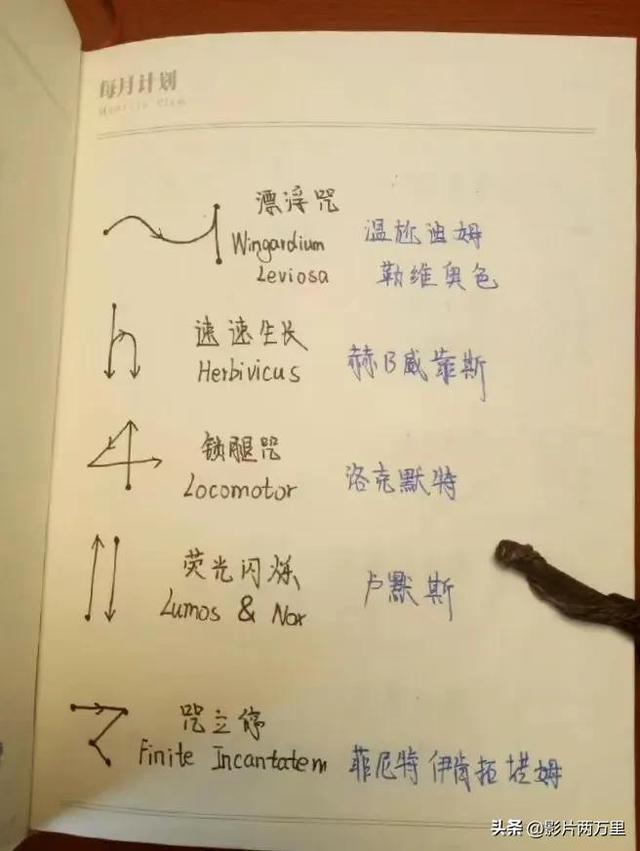 每月计划
漂浮咒
Wingardium
Leviosa
温尬迪姆
勒维奥色
速速生长
Herbivicus
赫B威菲斯
锁腿咒
Locomotor
洛克默特
荧光闪烁
Lumos & Nox
卢默斯
咒立停
Finite Incantatem
菲尼特 伊肯拓 塔姆
头条 @影片两万里